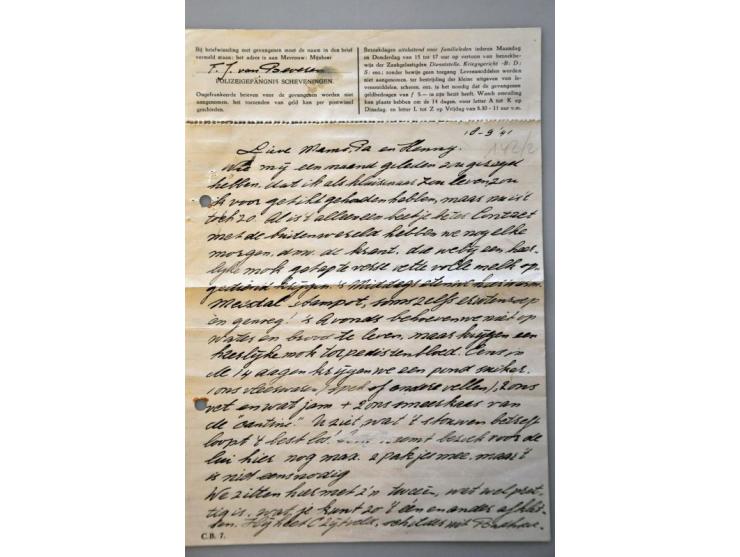 Bij briefwisseling met gevangenen moet de naam in den brief
vermeld staan: het adres is aan Mevrouw: Mijnheer
T. J. van
POLIZEIGEFÄNGNIS SCHEVENINGEN.
Ongefrankeerde brieven voor de gevangenen worden niet
aangenomen. het toezenden van geld kan per postwissel
geschieden.
Bezoekdagen uitsluitend voor familieleden iederen Maandag
en Donderdag van 15 tot 17 uur op vertoon van bezoekbe-
wijs der Zaakgelastigden Dienststelle. Kriegsgericht - B: D:
S: enz.: zonder bewijs geen toegang Levensmiddelen worden
niet aangenomen. ter bestrijding der kleine uitgaven van le-
vensmiddelen, scheren, enz. is het noodig dat de gevangenen
geldbedragen van f 5— in zijn bezit heeft. Wasch omruiling
kan plaats hebben om de 14 dagen. voor letter A tot K op
Dinsdag. en letter L tot Z op Vrijdag van 8.30 - 11 uur v.m.
18-9-'41
142/2
Lieve Mama, Pa en Henny.
Wie mij een maand geleden zou gezegd
hebben, dat ik als kluizenaar zou leven, zou
ik voor getikt gehouden hebben, maar nu is 't
toch zo. Al is 't alleen een beetje beter Contact
met de buitenwereld hebben we nog elke
morgen, d.m.v. de krant, die we bij een heer-
lijke mok getapte verse vette volle melk op
gediend krijgen. 's Middags eten we
stampot, soms zelfs erwtensoep
en genoeg! 's Avonds behoeven we niet op
water en brood te leven, maar krijgen een
heerlijke mok torpedisten bloed. Eens in
de 14 dagen krijgen we een pond suiker,
1 ons vleeswaren (spek of andere vellen), 2 ons
vet en wat jam + 2 ons smeerkaas van
de "cantine". U ziet wat 't stouwen betreft
loopt 't best los! neemt bezoek voor de
lui hier nog max. 2 pakjes mee, maar 't
is niet eens nodig
We zitten hier met z'n tweeën, wat wel pret-
tig is, want je kunt zo 't een en ander
Hij heet schilder uit
C.B. 7.